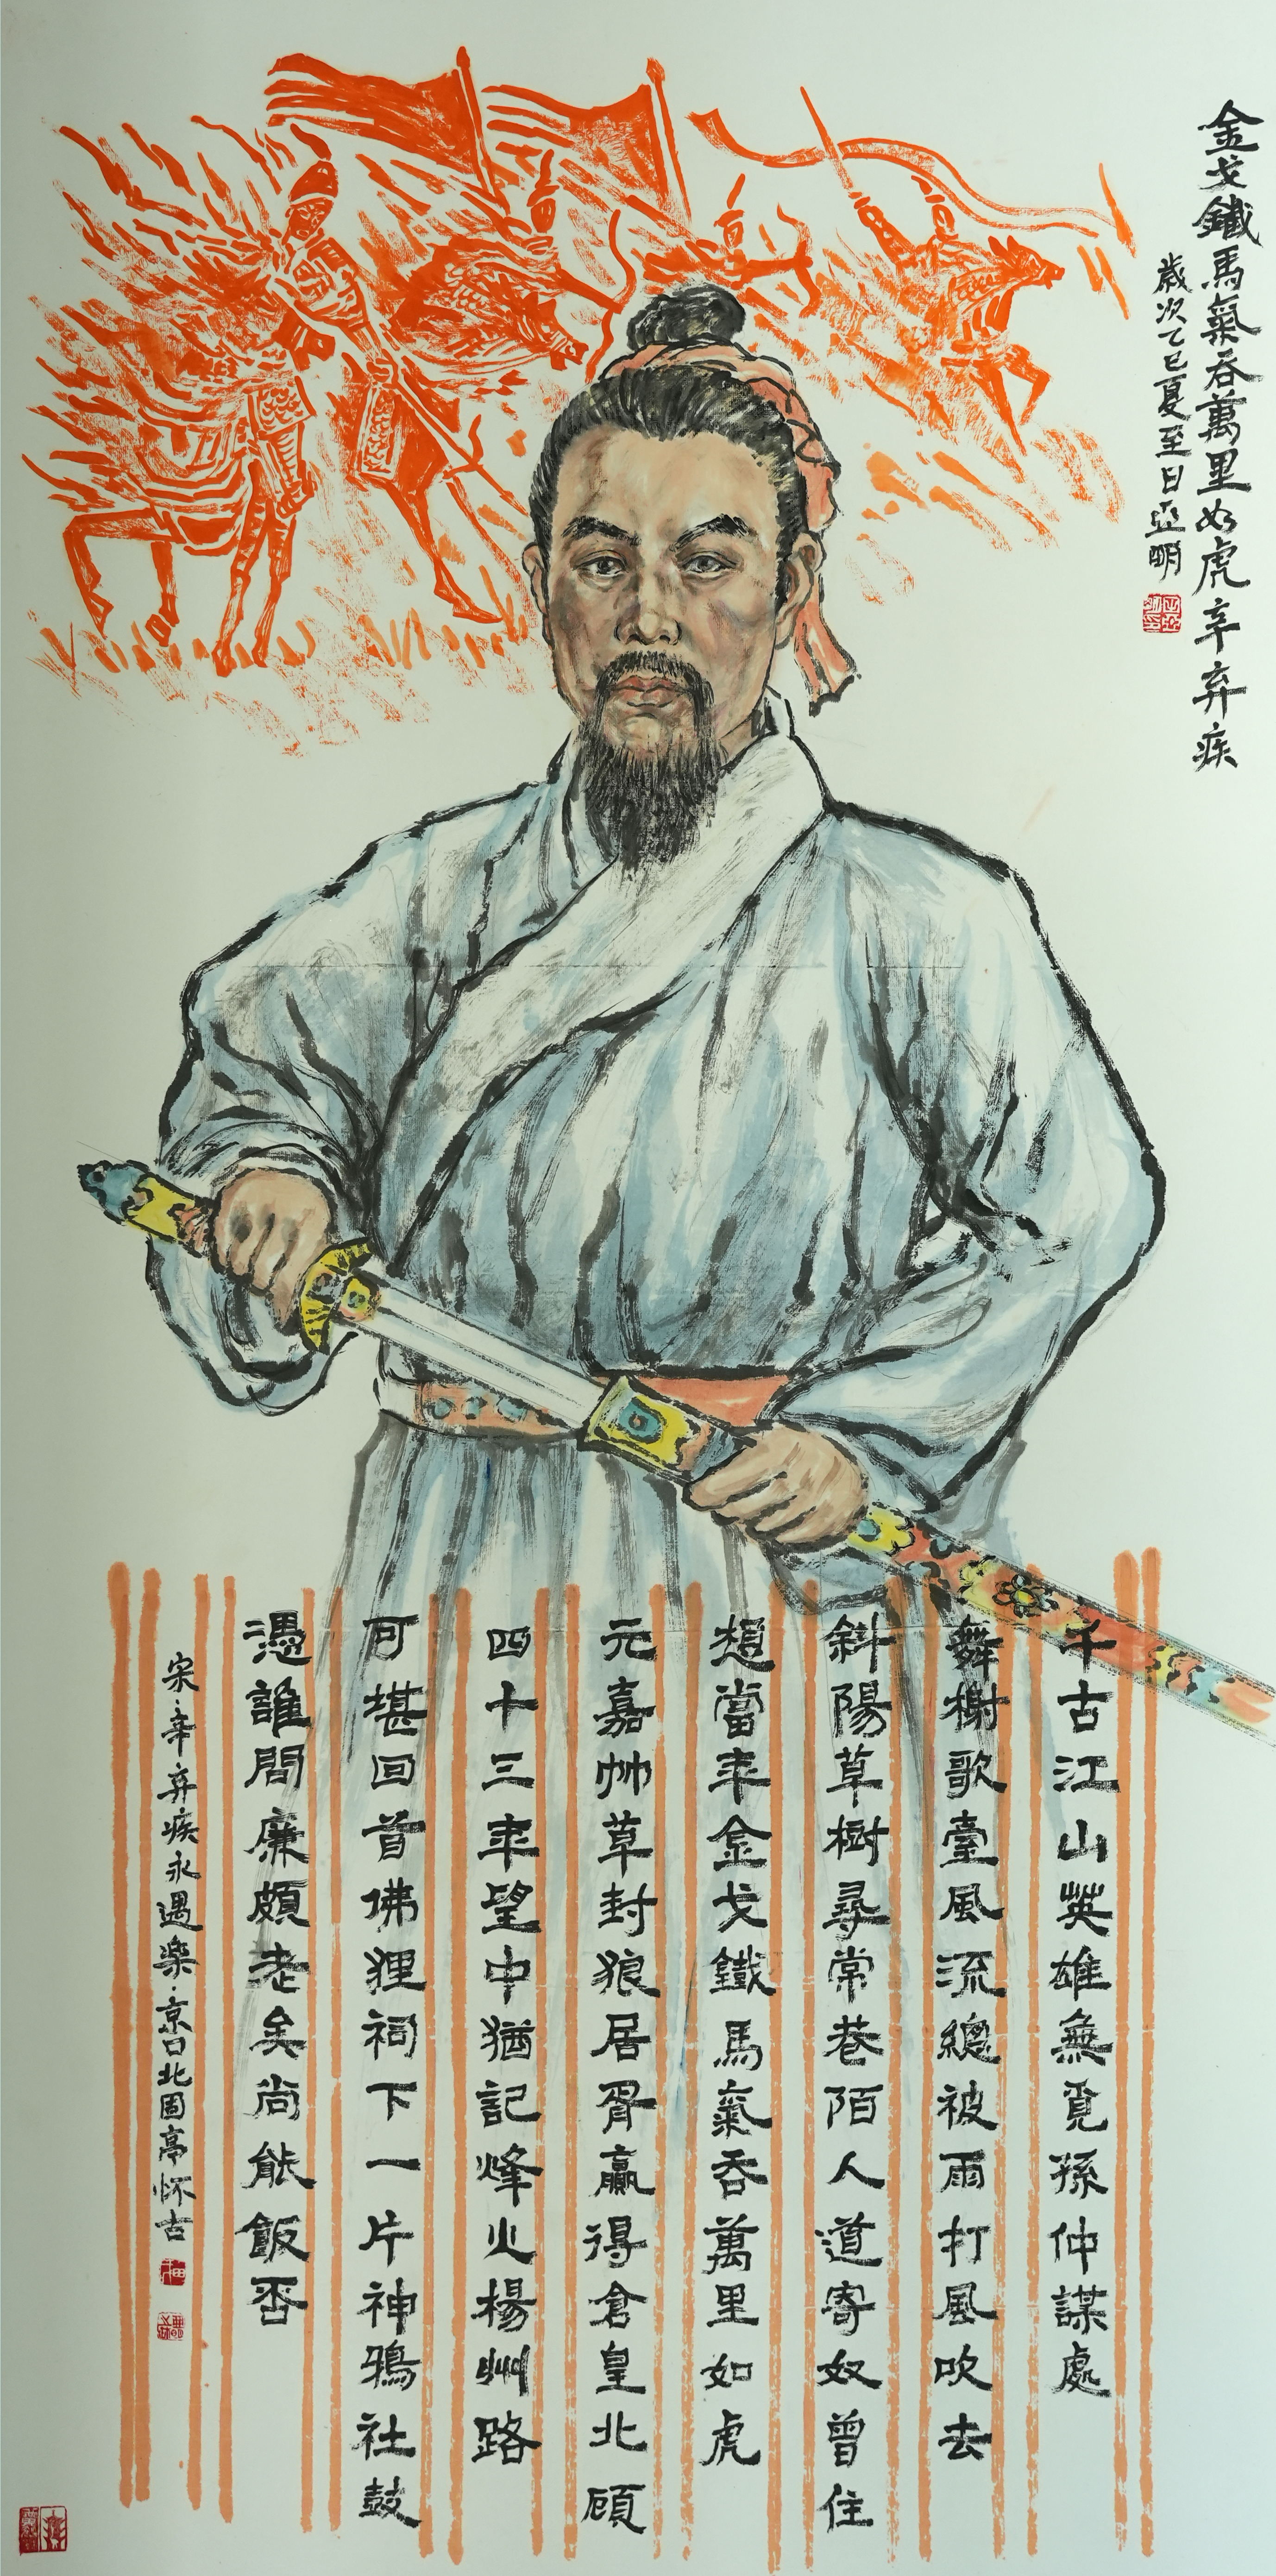 金戈鐵馬氣吞萬里如虎辛弃疾
歲次乙巳夏至日亞明
千古江山英雄無覓孫仲謀處
舞榭歌臺風流總被雨打風吹去
斜陽草樹尋常巷陌人道寄奴曾住
想當年金戈鐵馬氣吞萬里如虎
元嘉帅草封狼居胥贏得倉皇北顧
四十三年望中猶記烽火楊州路
可堪回首佛狸祠下一片神鴉社鼓
憑誰問廉頗老矣尚能飯否
宋辛弃疾永遇樂·京口北固亭怀古